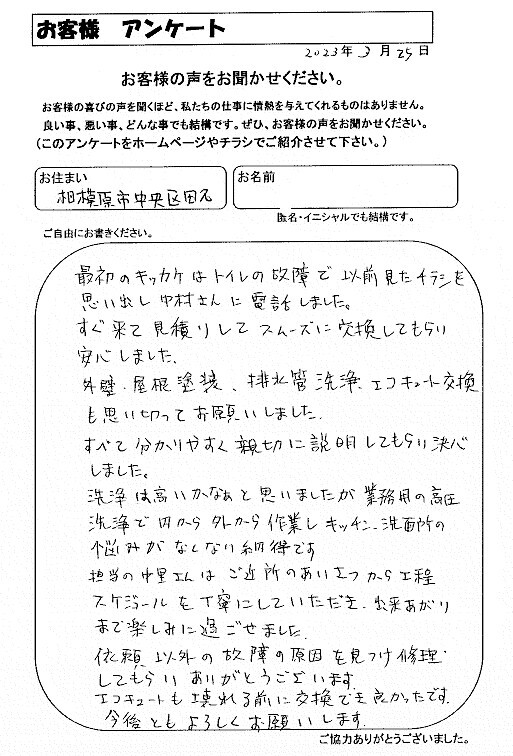 お客様 アンケート
2023年3月25日
お客様の声をお聞かせください。
お客様の喜びの声を聞くほど、私たちの仕事に情熱を与えてくれるものはありません。
良い事、悪い事、どんな事でも結構です。ぜひ、お客様の声をお聞かせください。
(このアンケートをホームページやチラシでご紹介させて下さい。)
お住まい
相模原市中央区田名
お名前
匿名・イニシャルでも結構です。
ご自由にお書きください。
最初のキッカケはトイレの故障で以前見たチラシを
思い出し中村さんに電話しました。
すぐ来て見積りしてスムーズに交換してもらい
安心しました。
外壁・屋根塗装、排水管洗浄、エコキュート交換
も思い切ってお願いしました。
すべて分かりやすく親切に説明してもらい決心
しました。
洗浄は高いかなぁと思いましたが業務用の高圧
洗浄で内から外から作業しキッチン、洗面所の
悩みがなくなり納得です
担当の中里さんはご近所のあいさつから工程
スケジュールを丁寧にしていただき、出来あがり
まで楽しみに過ごせました。
依頼以外の故障の原因を見つけ修理
してもらいありがとうございます。
エコキュートも壊れる前に交換でき良かったです。
今後ともよろしくお願いします。
ご協力ありがとうございました。